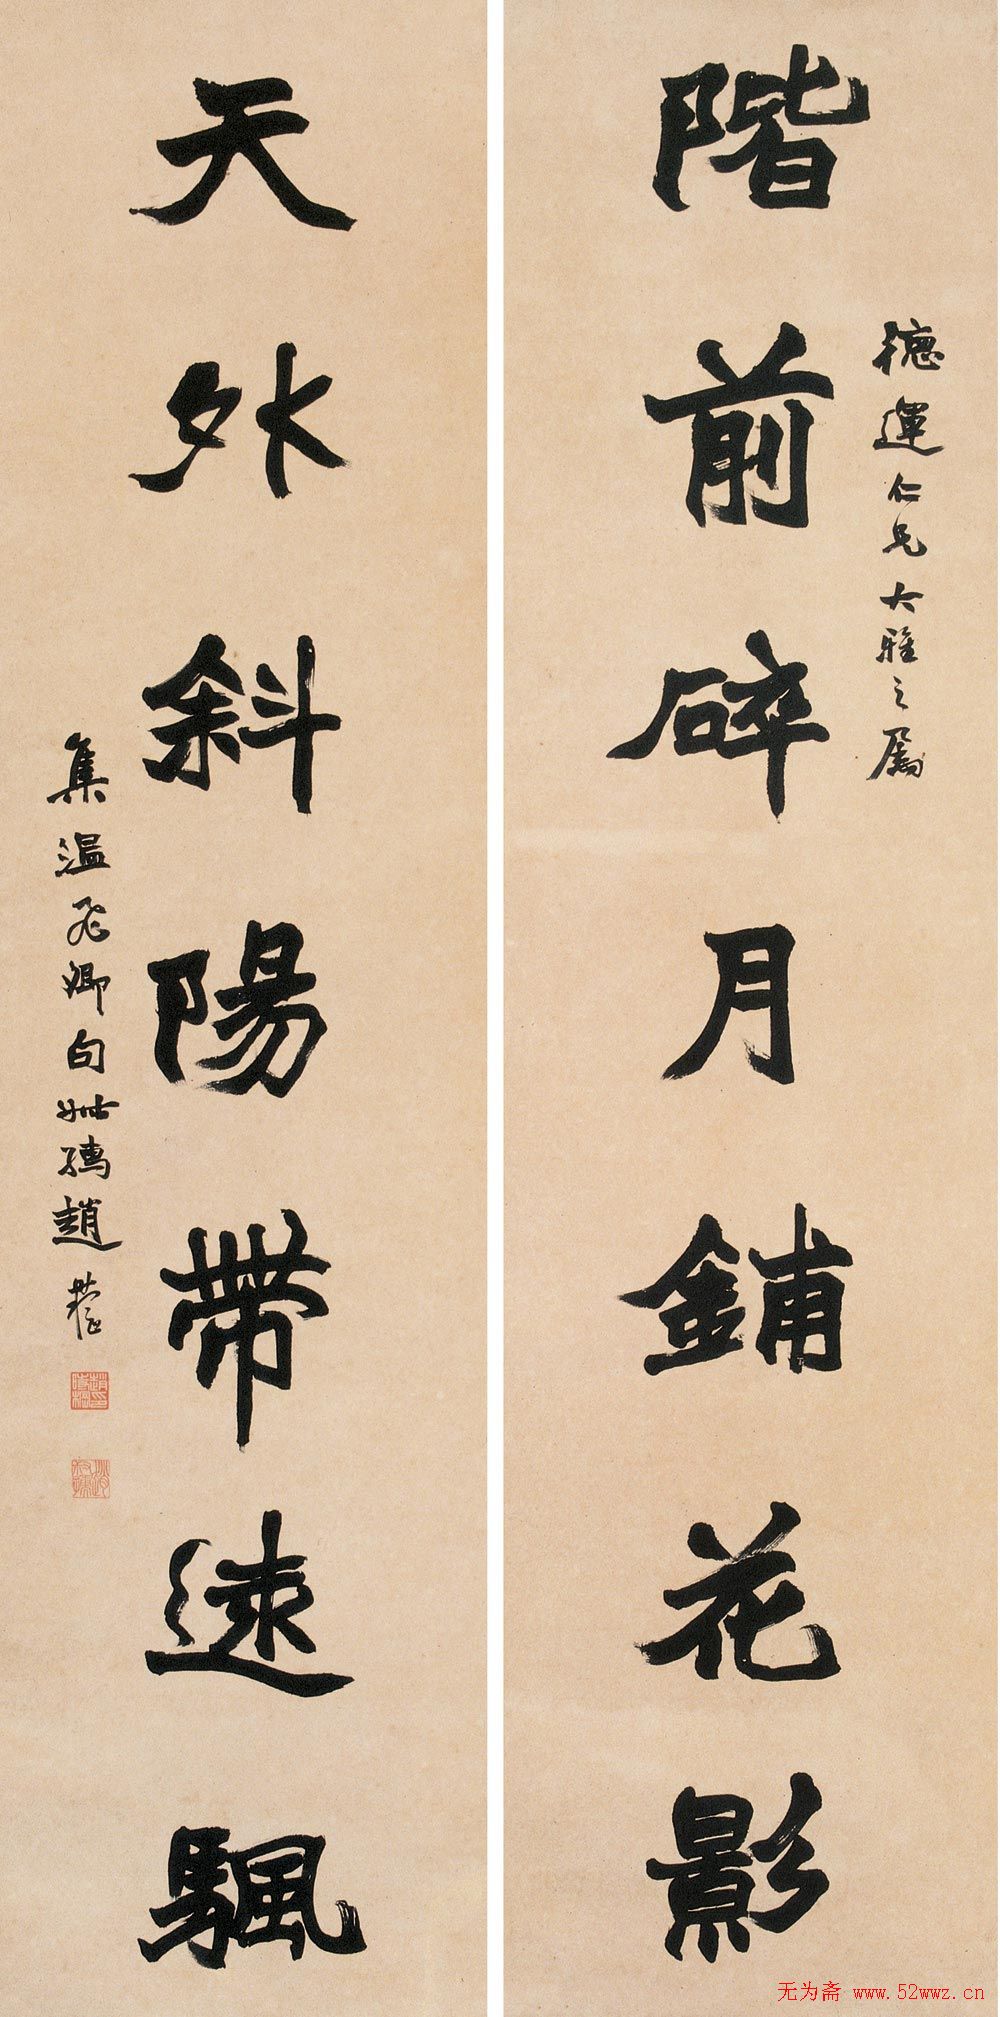 階前碎月鋪花影
德運仁兄大雅之屬
天外斜陽帶遠颿
集温飛卿句 叔孺趙
无为斋 www.52wwz.cn